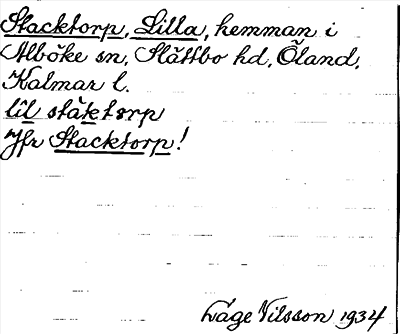 Stacktorp, Lilla, hemman i
Alböke sn, Slättbo hd, Öland,
Kalmar l.
lil stäktorp
Jfr Stacktorp!
Låge Nilsson 1934